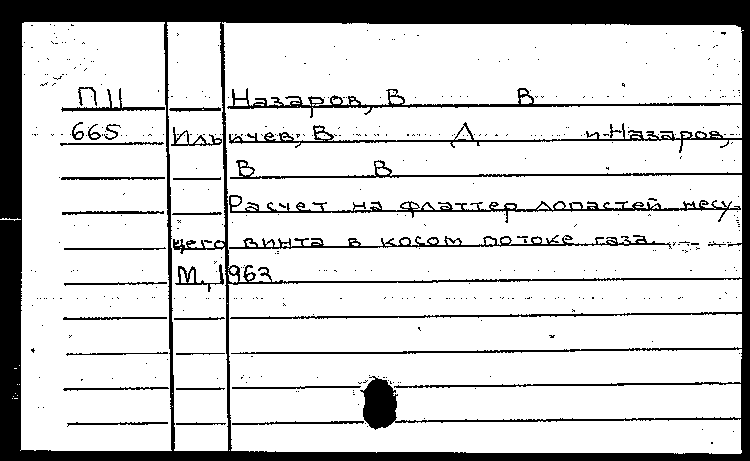 П11 Назаров, В В
665 Ильичев, В Д и Назаров,
В В
Расчет на флаттер лопастей несу-
щего винта в косом потоке газа.
М., 1963